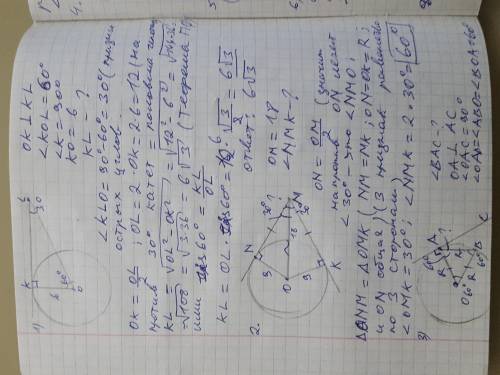 1) K L
30°
6 60°
O
OK ⊥ KL
∠KOL = 60°
∠K = 90°
KO = 6
KL - ?
∠KLO = 90° - 60° = 30° (
острых углов.
OK = OL/2; OL = 2 · OK = 2·6 = 12 (на
против 30° катет = половина
KL = √(OL² - OK²) = √(12² - 6²) = √(144-36) =
= √108 = √(3·36) = 6√3 (теорема
или sin 60° = KL/OL
KL = OL · sin 60° = 12 · √3/2 = 6√3
Ответ: 6√3
2. N
9 30°?
O 18 M
9 30
K
OM = 18
∠NMK - ?
ON = OM/2 (значит
напротив ON лежит
∠30° - это ∠NMO;
ΔONM = ΔOMK (NM = MK; ON = OK = R;
и ON общая) (3 признак равенства
по 3 сторонам)
∠OMK = 30°; ∠NMK = 2·30° = 60°
3)
60° A
R R
O 60° B
C
∠BAC - ?
OA ⊥ AC
∠OAC = 90°
∠OAB = ∠ABO = ∠BOA = 60°